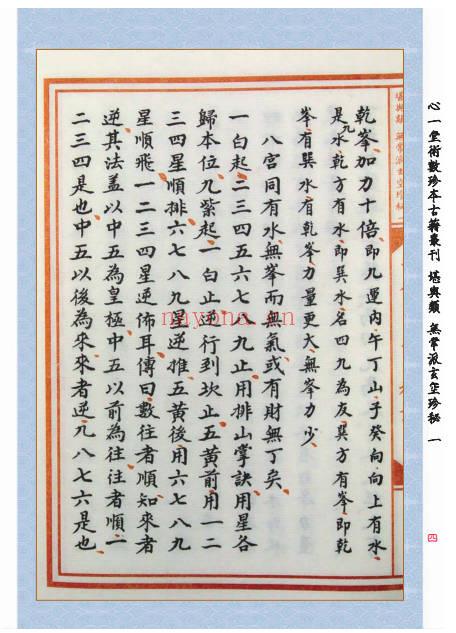 心一堂術數珍本古籍叢刊 堪輿類 無常派玄空珍秘 一
四
堪輿類 無常派玄空珍秘
乾峯加力十倍即九運內午丁山子癸向向上有水
是九水乾方有水即巽水名四九為友巽方有峯即乾
峯有巽水有乾峯力量更大無峯力少
八宮同有水無峯而無氣或有財無丁矣
一白起二三四五六七八九止用排山掌訣用星各
歸本位九紫起一白止逆行到坎止五黃前用一二
三四星順排六七八九星逆推五黃後用六七八九
星順飛一二三四星逆佈耳傳曰數往者順知來者
逆其法蓋以中五為皇極中五以前為往往者順一
二三四是也中五以後為來來者逆九八七六是也
nayona.cn